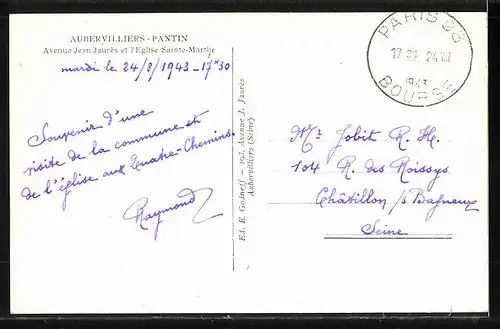 AUBERVILLIERS - PANTIN
Avenue Jean-Jaurès et l'Eglise Sainte-Marthe
mardi le 24/8/1943 - 17h30
Souvenir d'une
visite de la commune et
de l'église aux Quatre-Chemins.
Raymond
Ed. E. Godneff — 193, Avenue J. Jaurès
Aubervilliers (Seine)
PARIS 98
1943
BOURSE
Mr. Jobit R. H.
104 R. des Roissys
Châtillon /s Bagneux
Seine